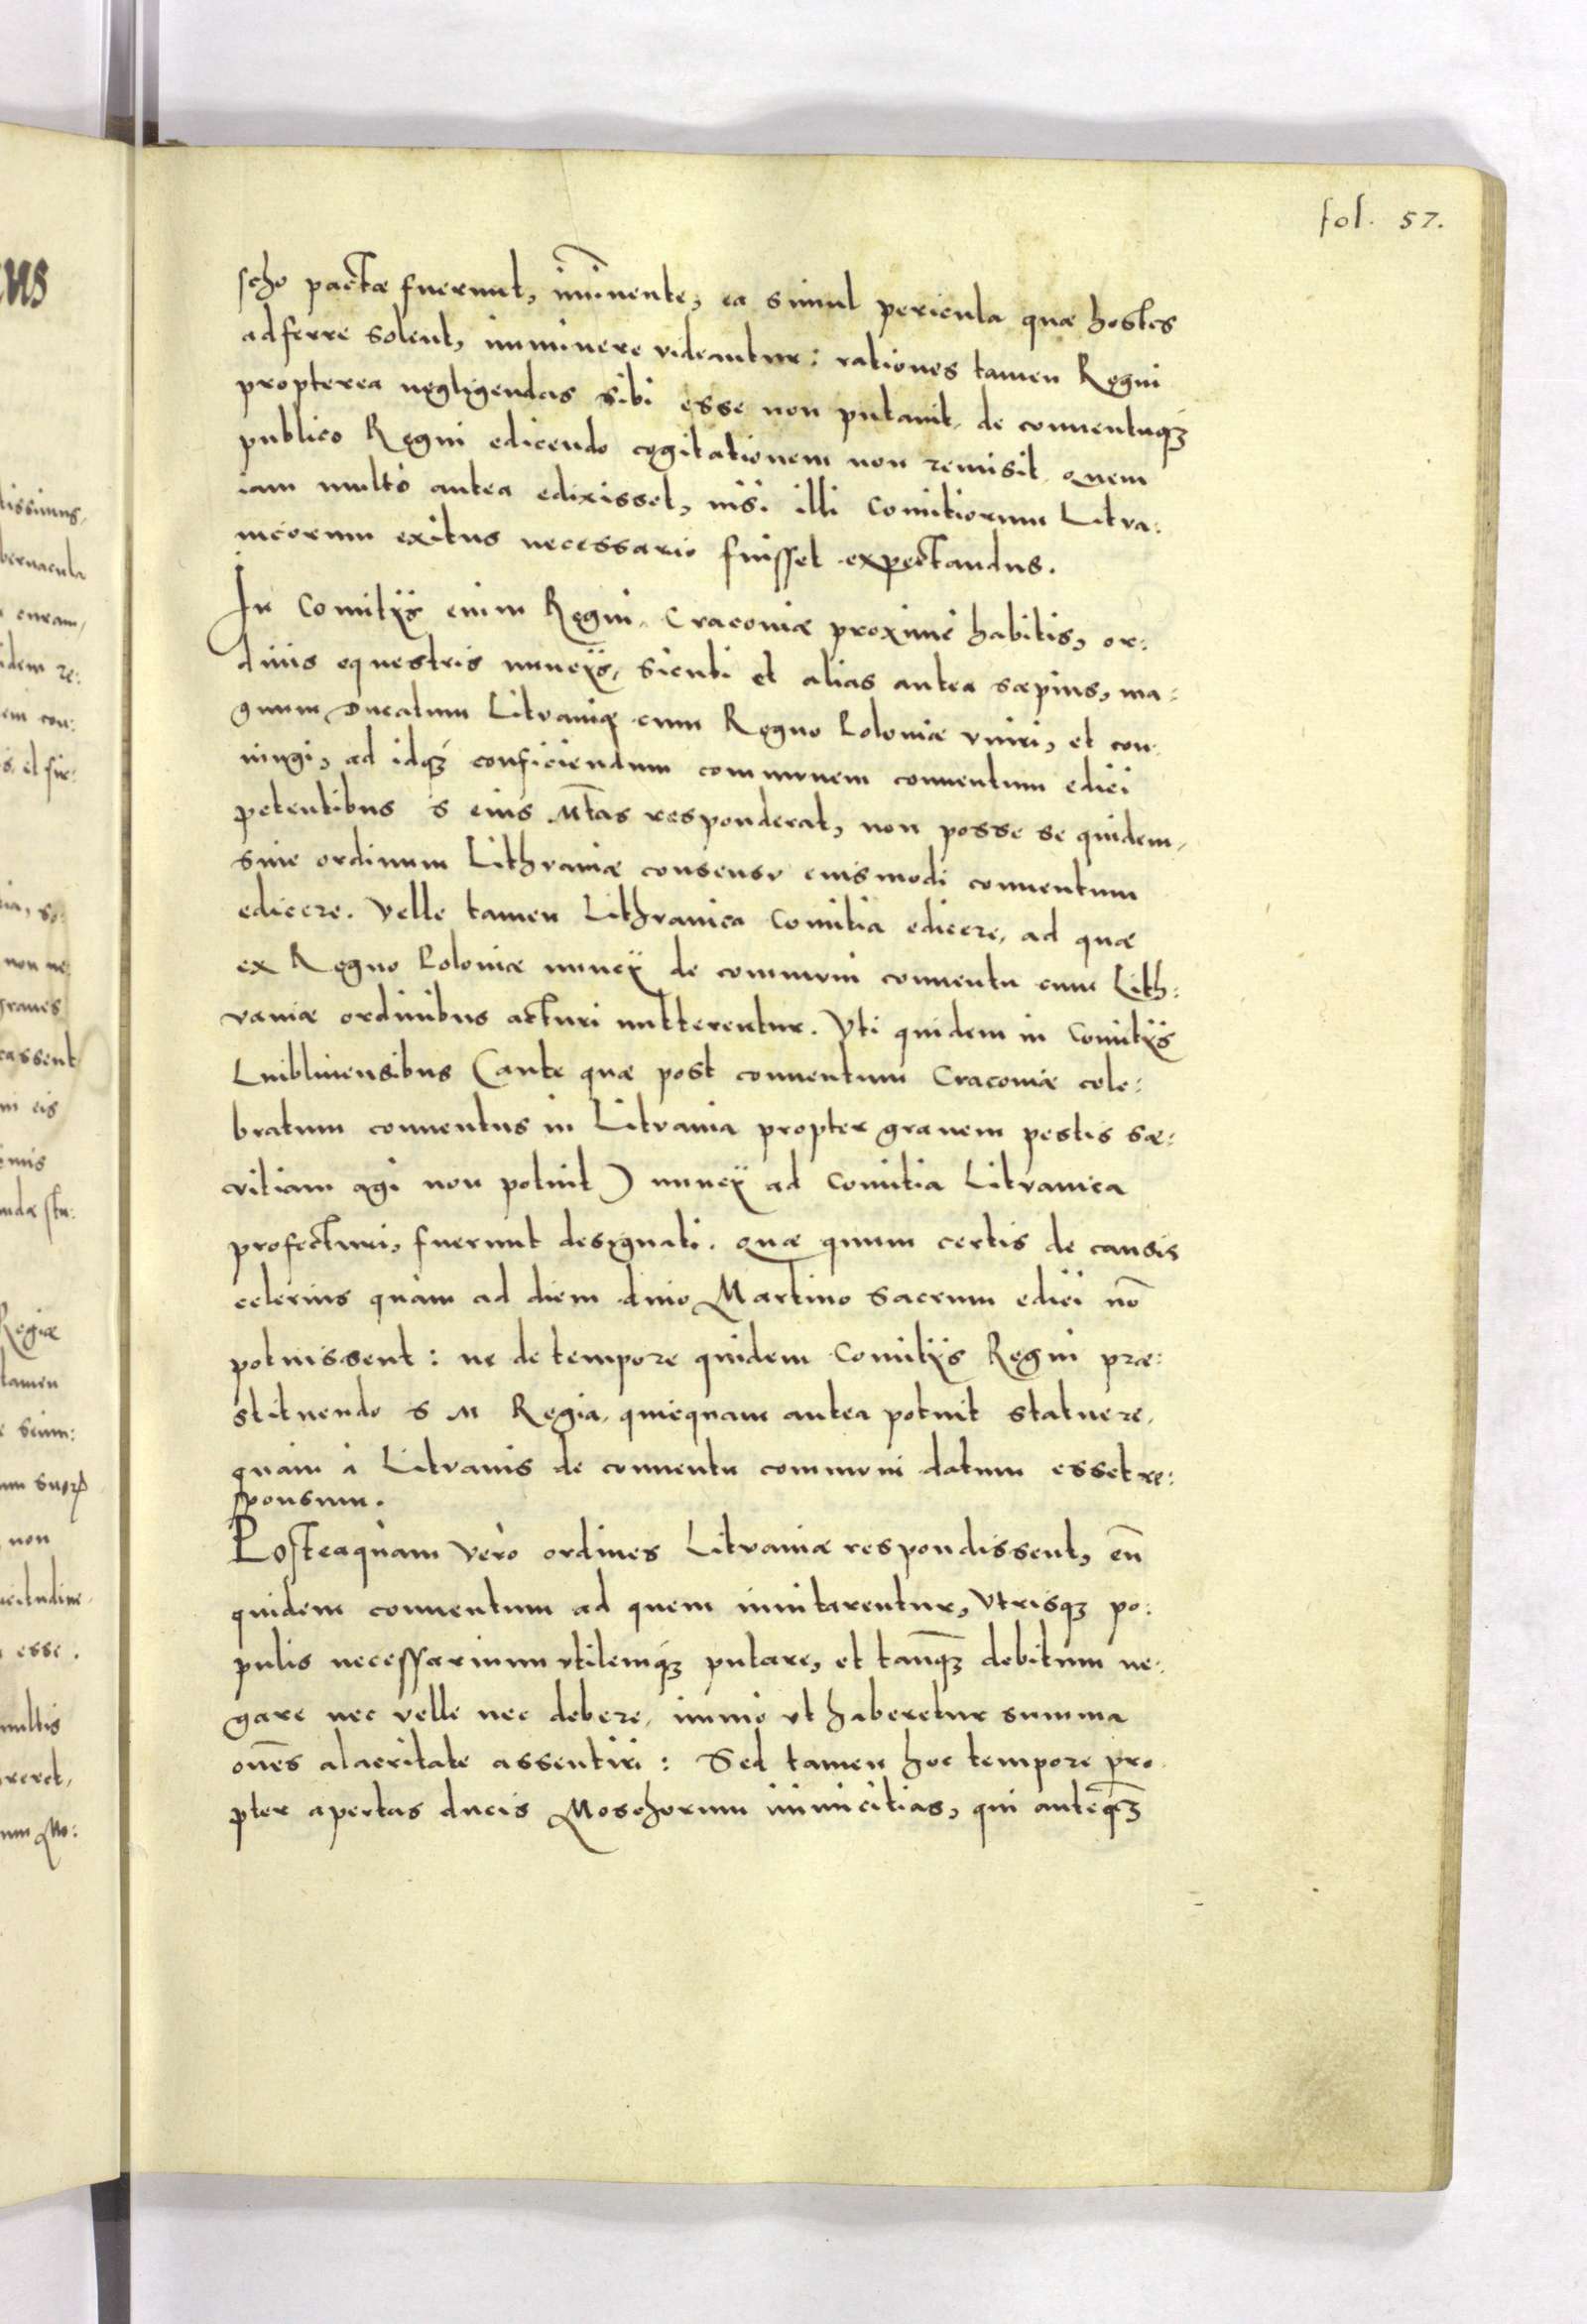 fol. 57.
scho pactæ fuerunt, im̄inente, ea simul pericula quæ hostes
adferre solent, imminere videantur: rationes tamen Regni
propterea negligendas sibi esse non putauit, de conuentuqꝫ
publico Regni edicendo cogitationem non remisit, quem
iam multò antea edixisset, nisi illi Comitiorum Litua:
nicorum exitus necessario fuisset expectandus.
In Comitÿs enim Regni, Cracouiæ proximè habitis, or:
dinis equestris nuncÿs, sicuti et alias antea sæpius, ma:
gnum Ducatum Lituaniæ cum Regno Poloniæ vniri, et con:
iungi, ad idqꝫ conficiendum communem conuentum edici
petentibus S eius Mt̄as responderat, non posse se quidem,
sine ordinum Lithvaniæ consensv eius modi conuentum
edicere. Velle tamen Lithvanica Comitia edicere, ad quæ
ex Regno Poloniæ nuncÿ de commvni conuentu cum Lith:
vaniæ ordinibus acturi mitterentur. Vti quidem in Comitÿs
Lublinensibus (ante quæ post conuentum Cracouiæ cele:
bratum conuentus in Litvania propter grauem pestis sæ:
vitiam agi non potuit) nuncÿ ad Comitia Litvanica
profecturi, fuerunt designati. Quæ quum certis de causis
celerius quàm ad diem diuo Martino Sacrum edici nō
potuissent: ne de tempore quidem Comitÿs Regni præ:
stituendo S M Regia, quicquam antea potuit statuere,
quàm à Litvanis de conuentu commvni datum esset re:
sponsum.
Posteaquàm verò ordines Litvaniæ respondissent, eū
quidem conuentum ad quem inuitarentur, Vtrisqꝫ po:
pulis necessarium vtilemqꝫ putare, et tanq̄ꝫ debitum ne:
gare nec velle nec debere, immò vt haberetur summa
oēs alacritate assentiri: Sed tamen hoc tempore pro
pter apertas ducis Moschorum inimicitias, qui anteq̄ꝫ